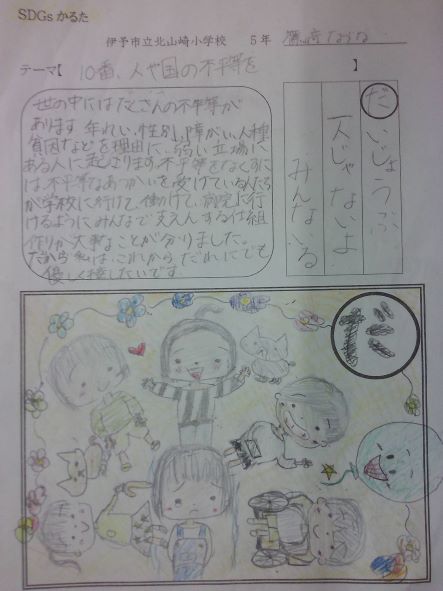 SDGs かるた
伊予市立北山崎小学校 5年
テーマ【 10番、人や国の不平等を 】
だいじょうぶ
一人じゃないよ
みんないる
世の中にはたくさんの不平等が
あります。年れい、性別、障がい、人種
貧困などを理由に、弱い立場に
ある人に起こります。不平等をなくすに
は、不平等なあつかいを受けている人たち
が学校に行けて、働けて、病院に行
けるようにみんなで支えんする仕組
作りが大事なことが分りました。
だから私は、これからだれにでも
優しく接したいです。
だ